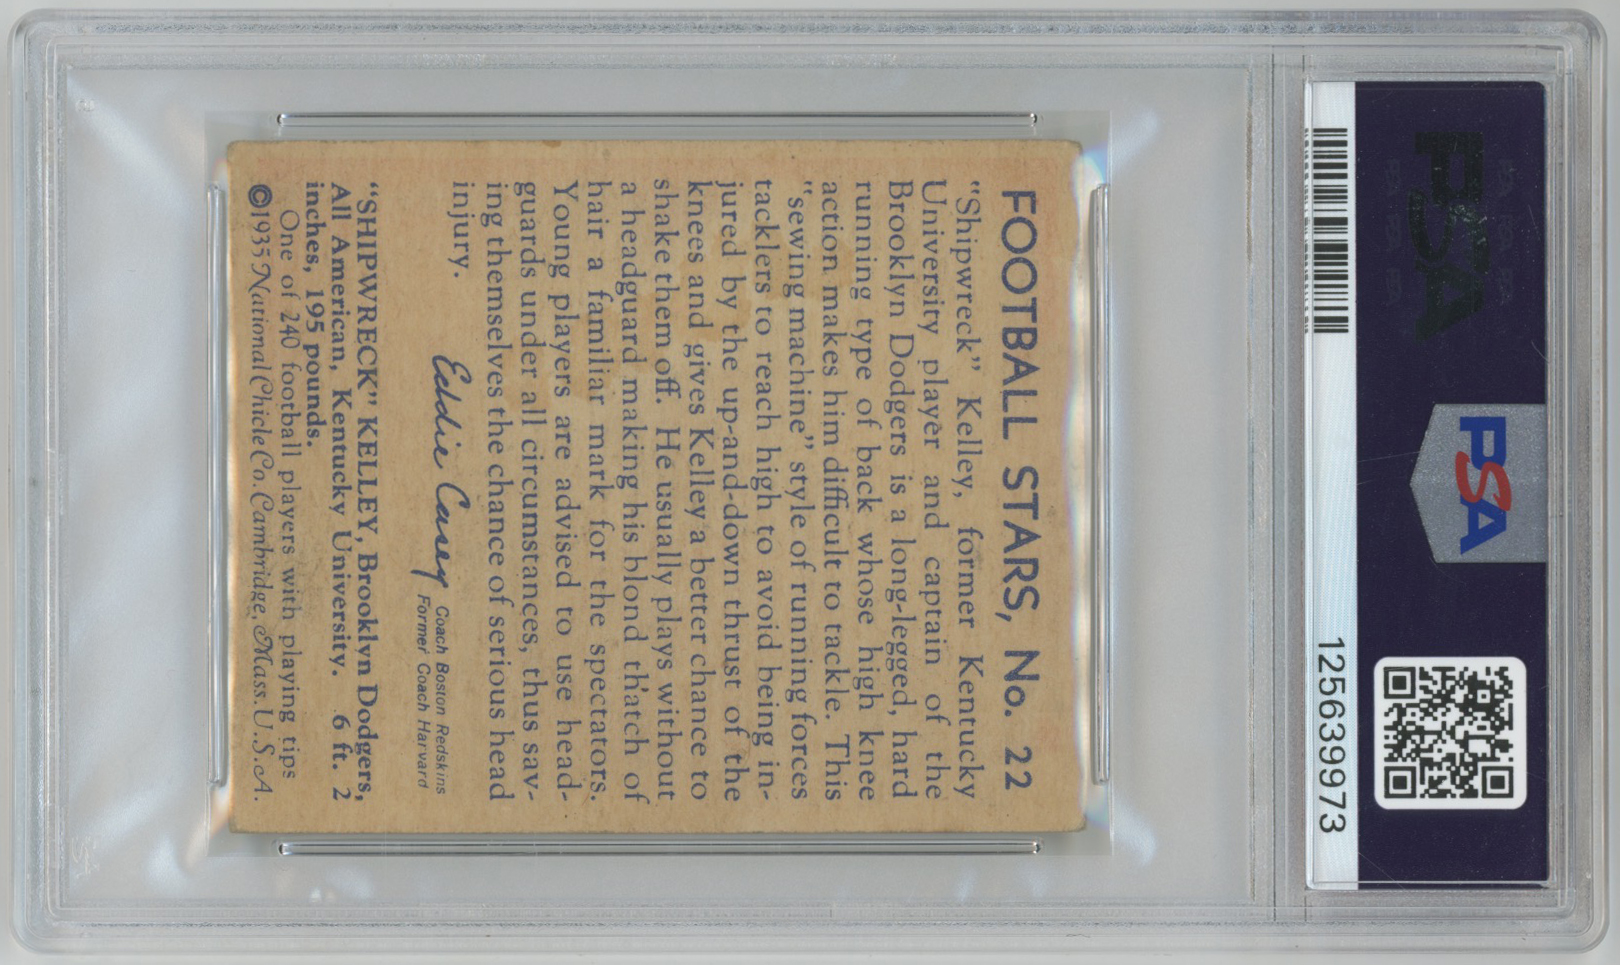 PSA
PSA
125639973
FOOTBALL STARS, No. 22
"Shipwreck" Kelley, former Kentucky
University player and captain of the
Brooklyn Dodgers is a long-legged, hard
running type of back whose high knee
action makes him difficult to tackle. This
"sewing machine" style of running forces
tacklers to reach high to avoid being in-
jured by the up-and-down thrust of the
knees and gives Kelley a better chance to
shake them off. He usually plays without
a headguard making his blond thatch of
hair a familiar mark for the spectators.
Young players are advised to use head-
guards under all circumstances, thus sav-
ing themselves the chance of serious head
injury.
Eddie Casey
Coach Boston Redskins
Former Coach Harvard
"SHIPWRECK" KELLEY, Brooklyn Dodgers,
All American, Kentucky University. 6 ft. 2
inches, 195 pounds.
One of 240 football players with playing tips
©1935 National Chicle Co. Cambridge, Mass. U.S.A.